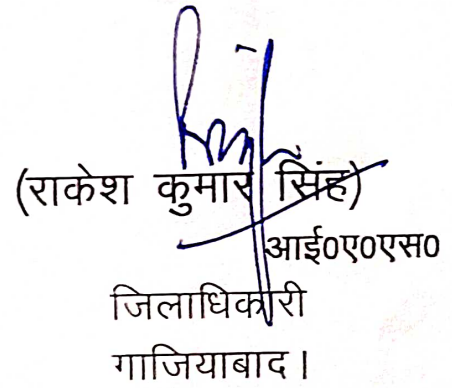 (राकेश कुमार सिंह)
आई०ए०एस०
जिलाधिकारी
गाजियाबाद।